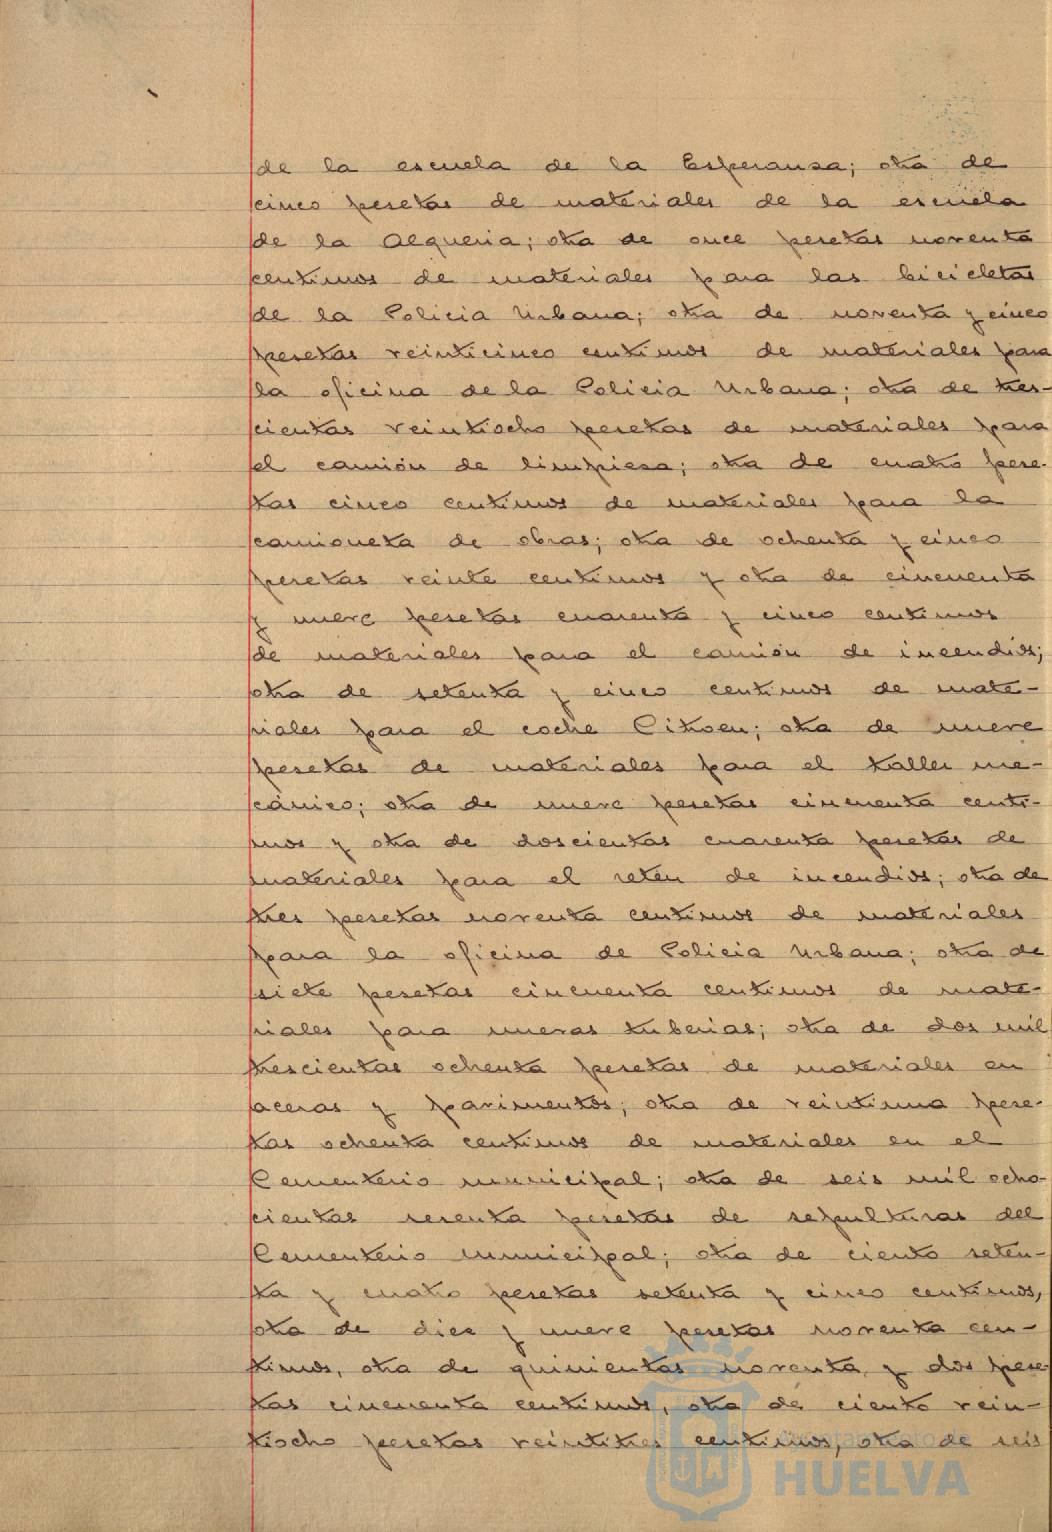 de la escuela de la Esperansa; otra de
cinco pesetas de materiales de la escuela
de la Alqueria; otra de once pesetas noventa
centimos de materiales para las bicicletas
de la Policia Urbana; otra de noventa y cinco
pesetas veinticinco centimos de materiales para
la oficina de la Policia Urbana; otra de tres-
cientas veintiocho pesetas de materiales para
el camión de limpiesa; otra de cuatro pese-
tas cinco centimos de materiales para la
camioneta de obras; otra de ochenta y cinco
pesetas veinte centimos y otra de cincuenta
y nueve pesetas cuarenta y cinco centimos
de materiales para el camión de incendios;
otra de setenta y cinco centimos de mate-
riales para el coche Citroen; otra de nueve
pesetas de materiales para el taller me-
cánico; otra de nueve pesetas cincuenta centi-
mos y otra de doscientas cuarenta pesetas de
materiales para el retén de incendios; otra de
tres pesetas noventa centimos de materiales
para la oficina de Policia Urbana; otra de
siete pesetas cincuenta centimos de mate-
riales para nuevas tuberias; otra de dos mil
trescientas ochenta pesetas de materiales en
aceras y pavimentos; otra de veintiuna pese-
tas ochenta centimos de materiales en el
Cementerio municipal; otra de seis mil ocho-
cientas sesenta pesetas de sepulturas del
Cementerio municipal; otra de ciento seten-
ta y cuatro pesetas setenta y cinco centimos,
otra de dies y nueve pesetas noventa cen-
timos, otra de quinientas noventa y dos pese-
tas cincuenta centimos, otra de ciento vein-
tiocho pesetas veintitres centimos, otra de seis
Ayuntamiento de
HUELVA